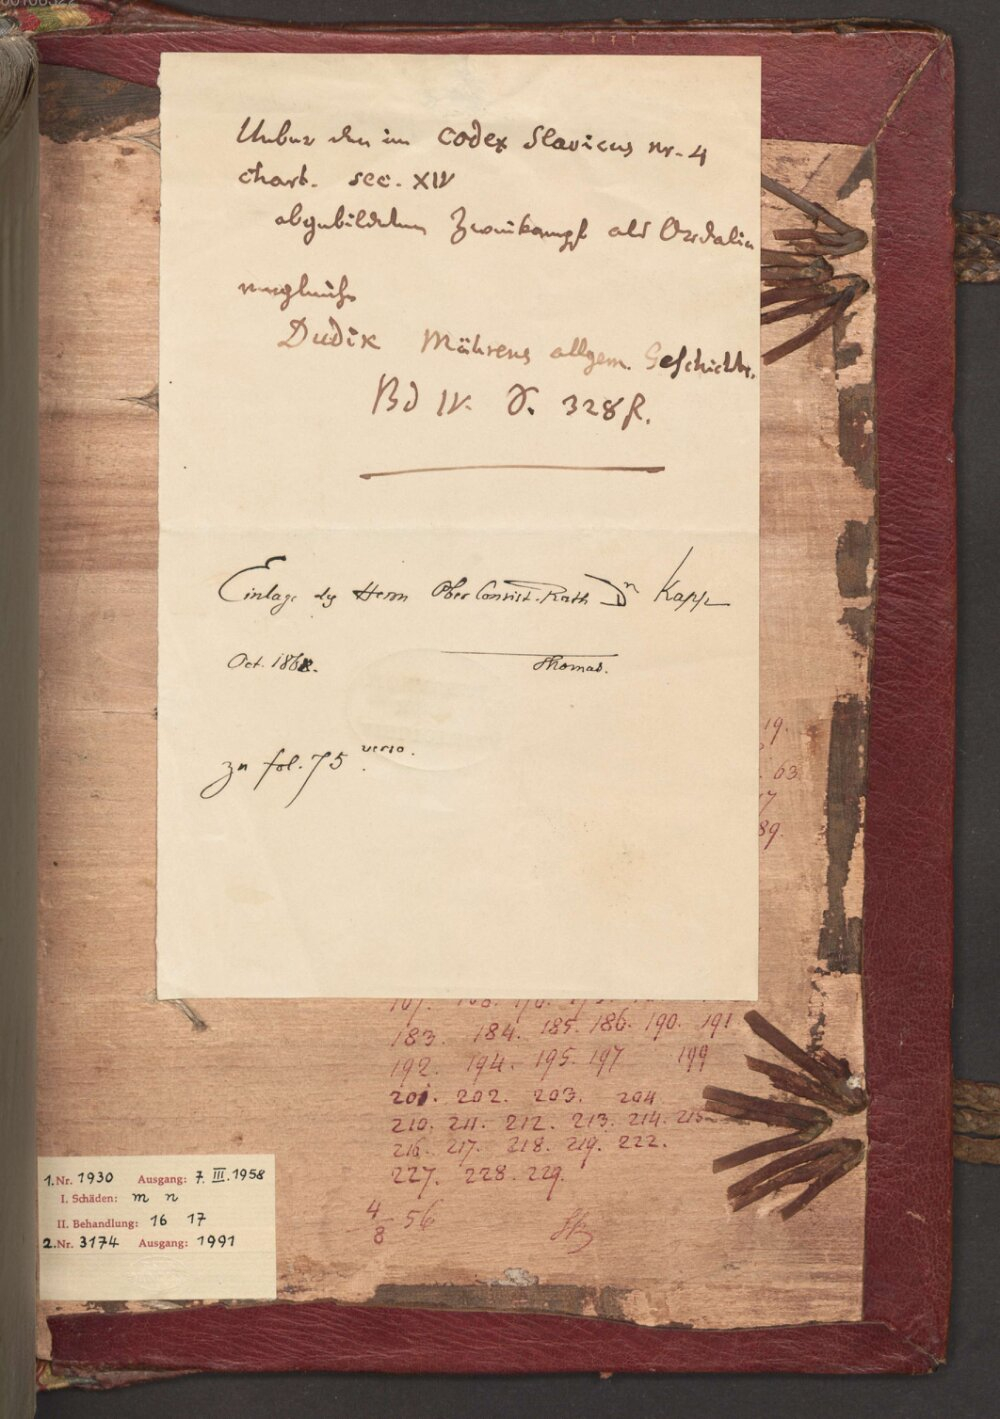 Ueber den im Codex Slavicus nr. 4
chart. sec. XIV
abgebildeten Zweikampf als Ordalie
vergleiche
Dudik Mährens allgem. Geschichte.
Bd IV. S. 328 f.
Einlage des Herrn Ober Consist. Rath Dr Kapp
Oct. 1868.
Thomas.
zu fol. 75 verso.
19.
63
17
89.
183. 184. 185. 186. 190. 191
192. 194. 195. 197 199
201. 202. 203. 204
210. 211. 212. 213. 214. 215
216. 217. 218. 219. 222.
227. 228. 229.
4/8 56
1. Nr. 1930 Ausgang: 7. III. 1958
I. Schäden: m n
II. Behandlung: 16 17
2. Nr. 3174 Ausgang: 1991